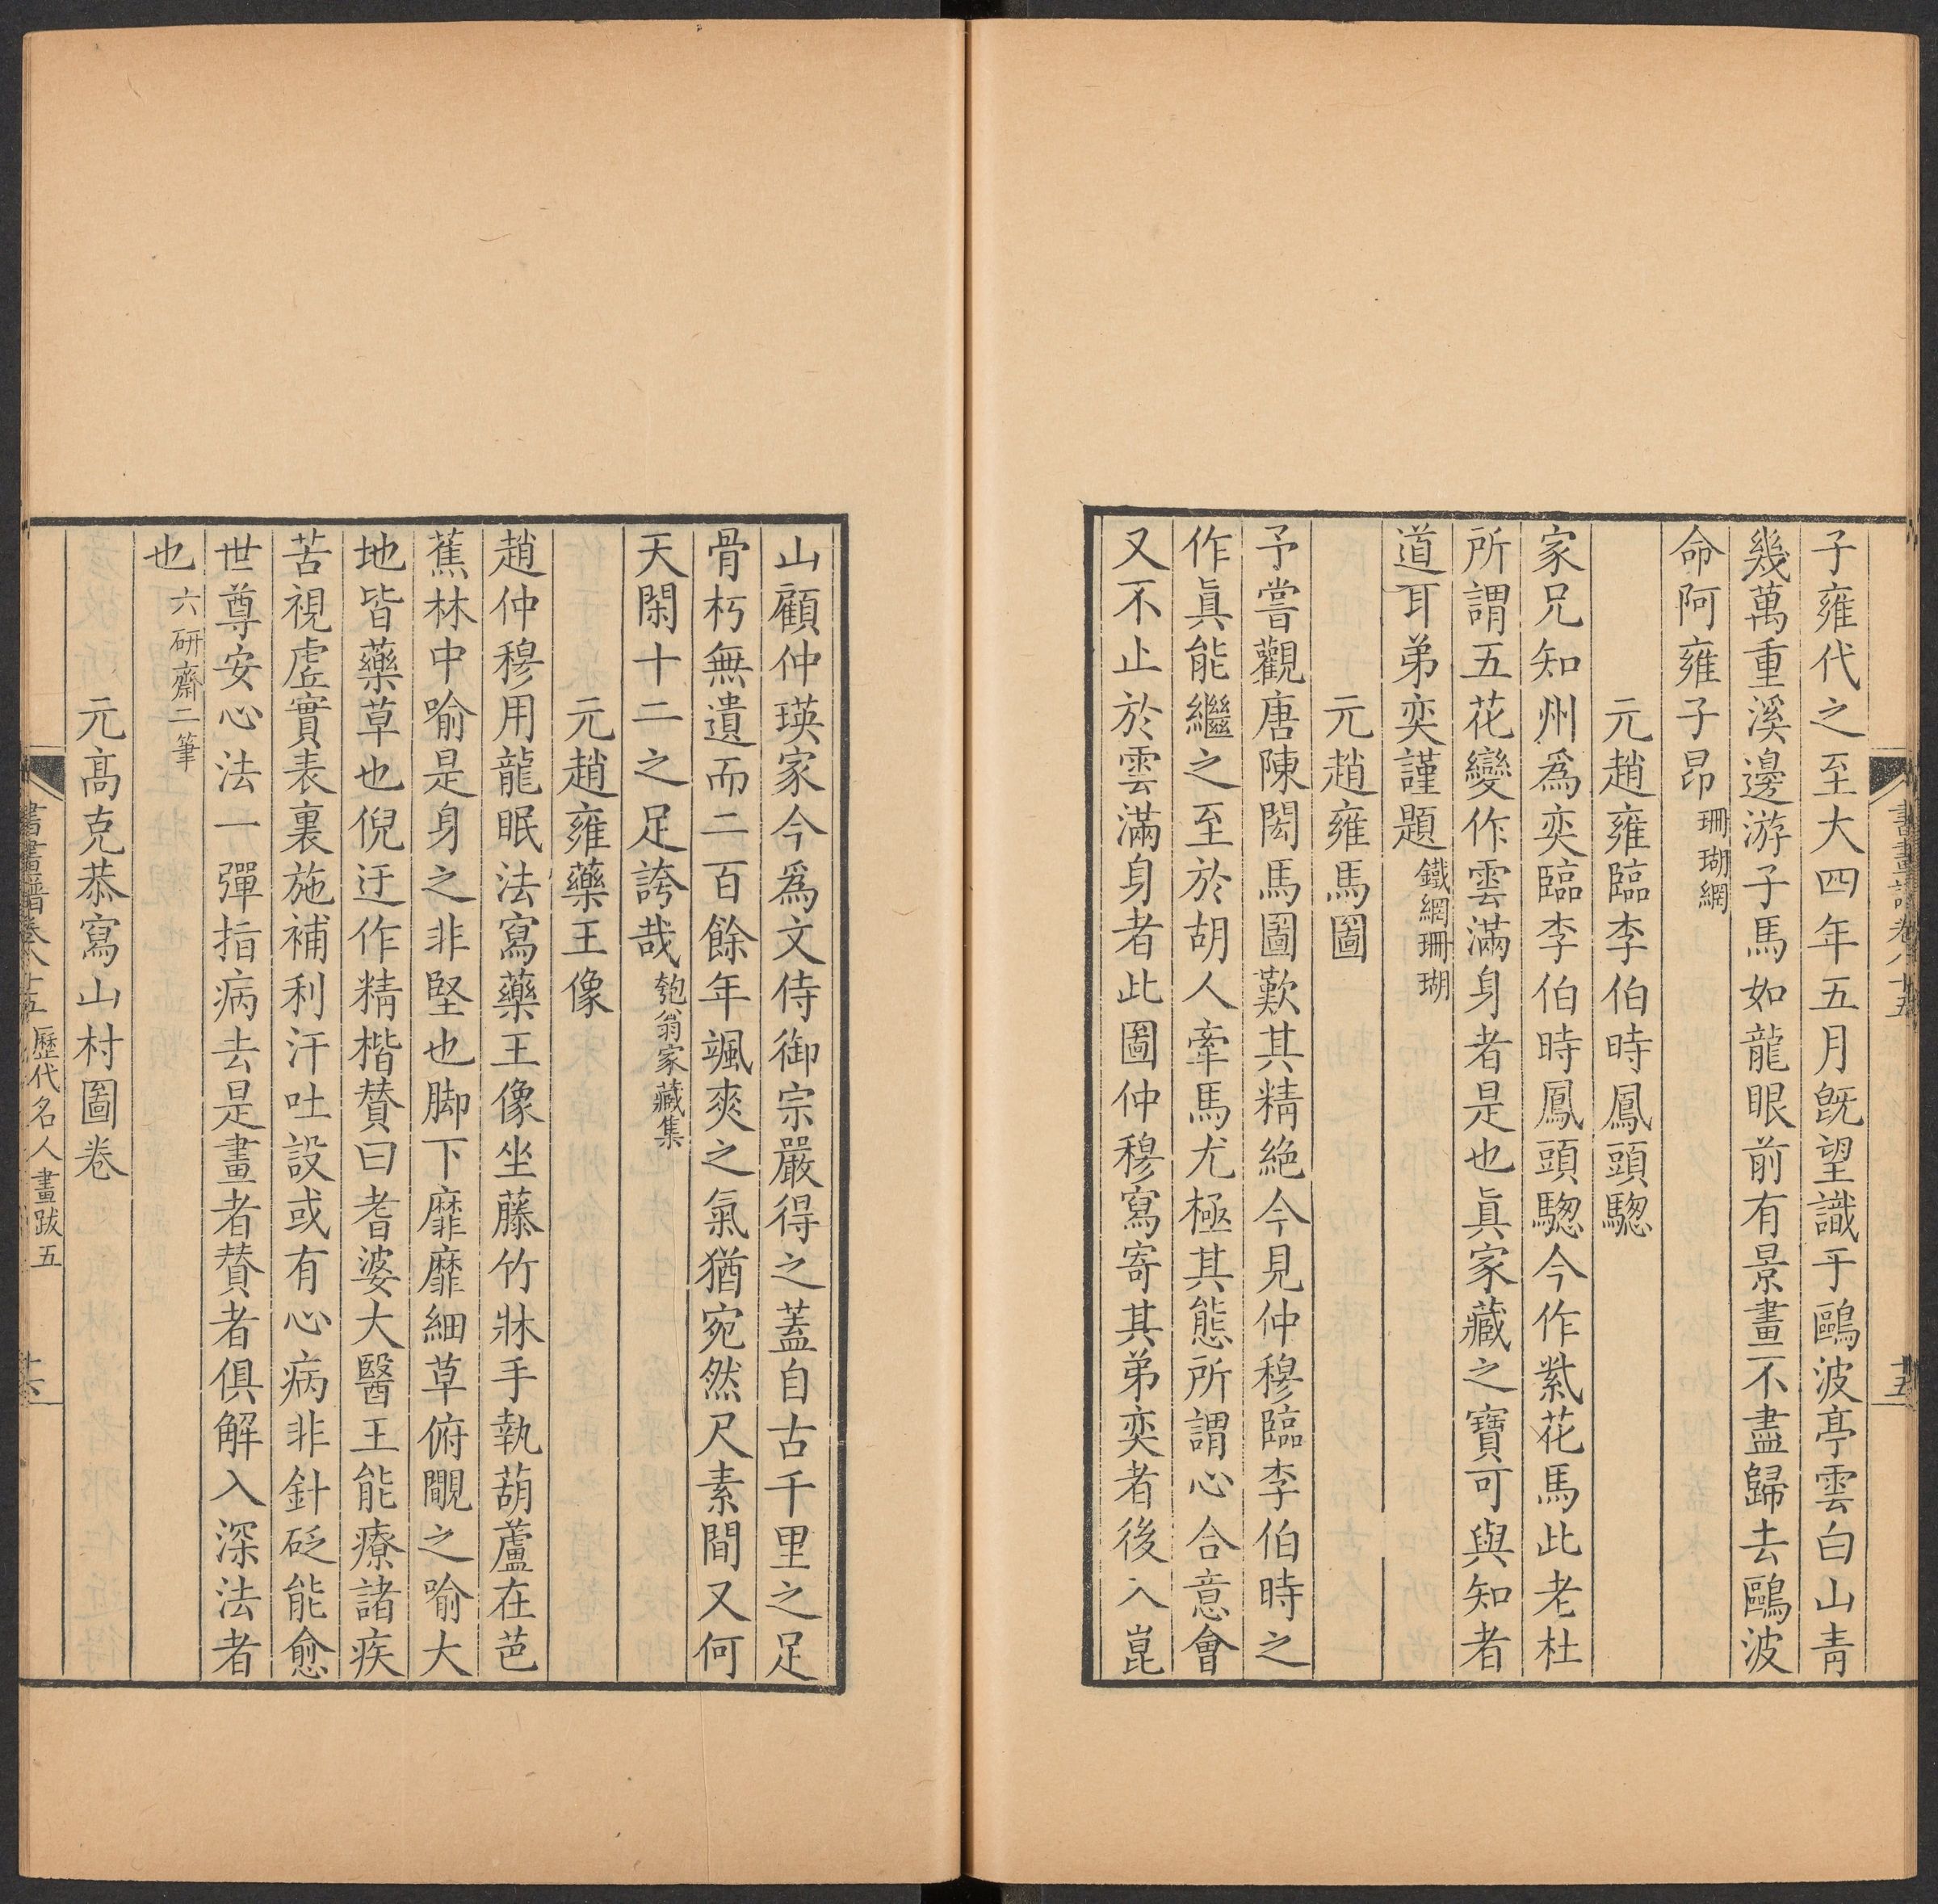 書畫譜卷八十五
十五
子雍代之至大四年五月旣望識于鷗波亭雲白山青
幾萬重溪邊游子馬如龍眼前有景畫不盡歸去鷗波
命阿雍子昂珊瑚網
元趙雍臨李伯時鳳頭驄
家兄知州爲奕臨李伯時鳳頭驄今作紫花馬此老杜
所謂五花變作雲滿身者是也眞家藏之寶可與知者
道耳弟奕謹題鐵網珊瑚
元趙雍馬圖
予嘗觀唐陳閎馬圖歎其精絶今見仲穆臨李伯時之
作眞能繼之至於胡人牽馬尤極其態所謂心合意會
又不止於雲滿身者此圖仲穆寫寄其弟奕者後入崑
山顧仲瑛家今爲文侍御宗嚴得之蓋自古千里之足
骨朽無遺而二百餘年颯爽之氣猶宛然尺素間又何
天閑十二之足誇哉匏翁家藏集
元趙雍藥王像
趙仲穆用龍眠法寫藥王像坐藤竹牀手執葫蘆在芭
蕉林中喻是身之非堅也脚下靡靡細草俯覵之喻大
地皆藥草也倪迂作精楷賛曰耆婆大醫王能療諸疾
苦視虛實表裏施補利汗吐設或有心病非針砭能愈
世尊安心法一彈指病去是畫者賛者俱解入深法者
也六研齋二筆
元高克恭寫山村圖卷
書畫譜卷八十五 歷代名人畫跋五
十六